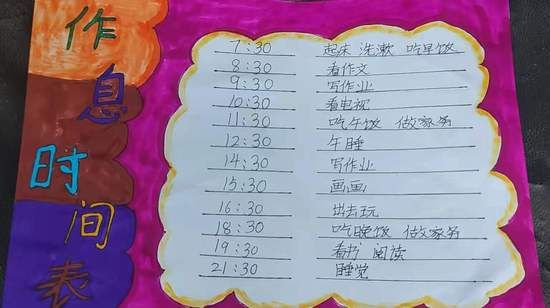 作息时间表
7:30 起床 洗漱 吃早饭
8:30 看作文
9:30 写作业
10:30 看电视
11:30 吃午饭 做家务
12:30 午睡
14:30 写作业
15:30 画画
16:30 出去玩
18:30 吃晚饭 做家务
19:30 看书 阅读
21:30 睡觉